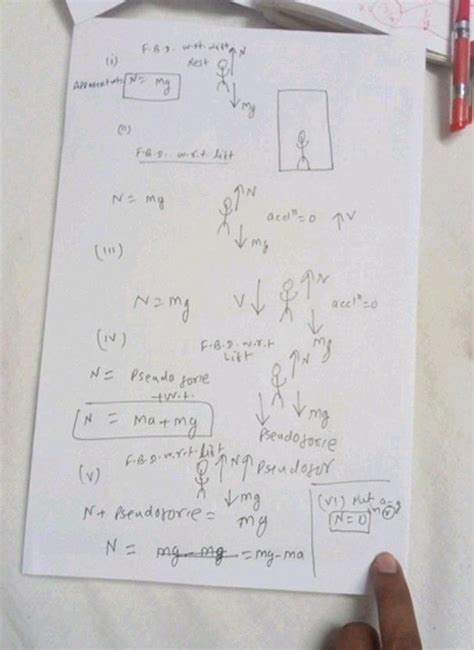 F.B.D. w.r.t. lift
(i) Rest ↑N
N = mg
↓mg
(ii)
F.B.D. w.r.t. lift
N = mg
↑N
accl^n = 0 ↑V
↓mg
(iii)
N = mg
V↓ ↑N
accl^n = 0
↓mg
(iv)
F.B.D. w.r.t
Lift
↑N
N = Pseudo force
+ wt.
↓mg
N = ma + mg
Pseudoforce
F.B.D. w.r.t. lift
(v)
↑N↑ Pseudofor
↓mg
N + Pseudoforce =
mg
N = mg - mg = mg - ma
(vi) Put a = g
in (v)
N = 0